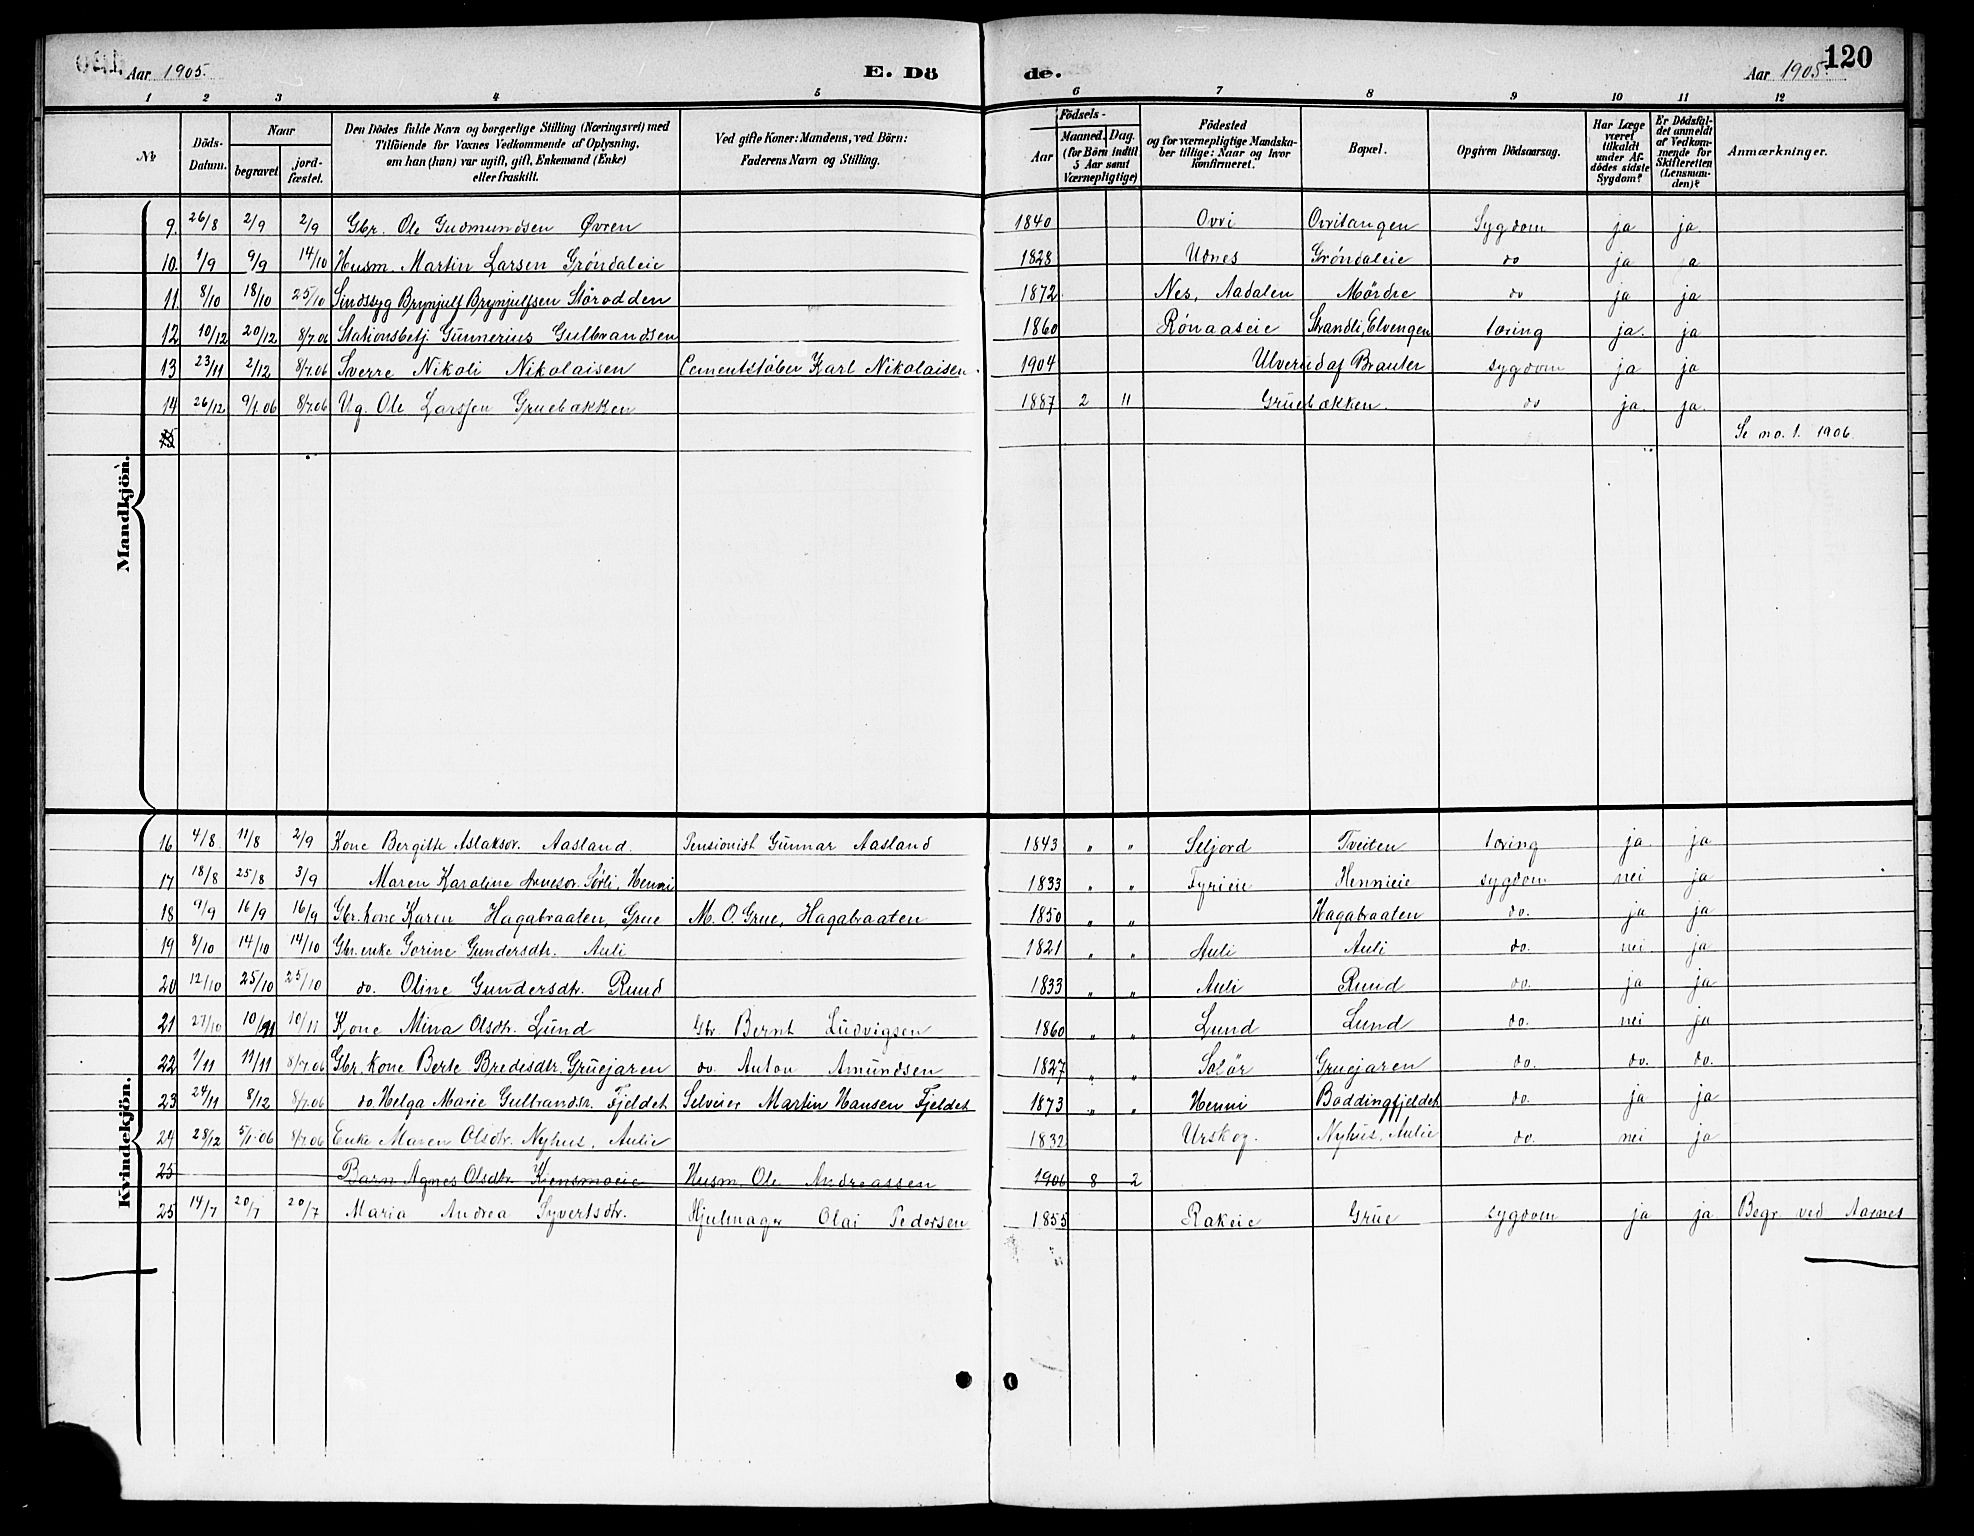 Aar 1905. E. Dö de. Aar 1905. 120
1 2 3 4 5 6 7 8 9 10 11 12
No Döds-Datum. Naar begravet jord-fæstet. Den Dödes fulde Navn og borgerlige Stilling (Næringsvei) med Tilföiende for Voxnes Vedkommende af Oplysning, om han (hun) var ugift, gift, Enkemand (Enke) eller fraskilt. Ved gifte Koner: Mandens, ved Börn: Faderens Navn og Stilling. Födsels- Aar Maaned. Dag. (for Børn indtil 5 Aar samt Værnepligtige) Födested og for værnepligtige Mandskaber tillige: Naar og hvor konfirmeret. Bopæl. Opgiven Dödsaarsag. Har Læge været tilkaldt under Afdödes sidste Sygdom? Er Dödsfaldet anmeldt af Vedkommende for Skifteretten (Lensmanden)? Anmærkninger.
Mandkjön.
9. 26/8 2/9 2/9 Gbr. Ole Gudmundsen Øvren 1840 Ovri Ovritangen Sygdom ja ja
10. 1/9 9/9 14/10 Husm. Martin Larsen Grøndaleie 1828 Udnes Grøndaleie do ja ja
11. 8/10 18/10 25/10 Sindssyg Brynjulf Brynjulfsen Størodden 1872 Nes, Aadalen Mördre do ja ja
12 10/12 20/12 8/7.06 Stationsbetj. Gunnerius Gulbrandsen 1860 Rønaaseie Strandli, Elvengen tæring ja. ja
13 23/11 2/12 8/7.06 Sverre Nikoli Nikolaisen Cementstøber Karl Nikolaisen. 1904 Ulverud af Brauter sygdom ja ja
14 26/12 9/1.06 8/7.06 Ug. Ole Larssen Gruebækken 1887 2 11 Gruebækken. do ja. ja.
15 Se no. 1. 1906.
Kvindekjön.
16 4/8 11/8 2/9 Kone Bergitte Aslaksdr. Aasland. Pensionist Gunnar Aasland 1843 " " Seljord Tveiten tæring ja. ja
17 18/8 25/8 3/9 Maren Karoline Arnesdr. Sørli, Henni 1833 " " Fyrieie Hennieie sygdom nei ja
18 9/9 16/9 16/9 Gbr. kone Karen Hagabraaten, Grue M. O. Grue, Hagabraaten 1850 " " Hagabraaten do. ja ja
19 8/10 14/10 14/10 Gbr. enke Gorine Gundersdtr. Auli 1821 " " Auli Auli do. nei ja
20 12/10 25/10 25/10 do. Oline Gundersdtr. Ruud 1833 " " Auli Ruud do. ja ja
21 27/10 10/11 10/11 Kone Mina Olsdtr. Lund Gbr. Bernt Ludvigsen 1860 " " Lund Lund do. nei ja
22 1/11 11/11 8/7.06 Gbr. kone Berte Bredesdtr. Gruejaren do. Anton Amundsen 1827 " " Solör Gruejaren do. do. do.
23 24/11 8/12 8/7.06 do. Helga Marie Gulbrandsdr. Fjeldet Selveier Martin Hansen Fjeldet 1873 " " Henni Boddingfjeldet do. ja ja
24 28/12 5/1.06 8/7.06 Enke Maren Olsdtr. Nyhus, Aulie 1832 Urskog. Nyhus, Aulie do. nei ja
25 Barn Agnes Olsdtr. Kjensmoeie Husm. Ole Andreassen 1906 8 2
25 14/7 20/7 20/7 Maria Andrea Syvertsdtr. Hjulmager Olai Pedersen 1855 Rakeie Grue sygdom ja ja Begr. ved Aarnes